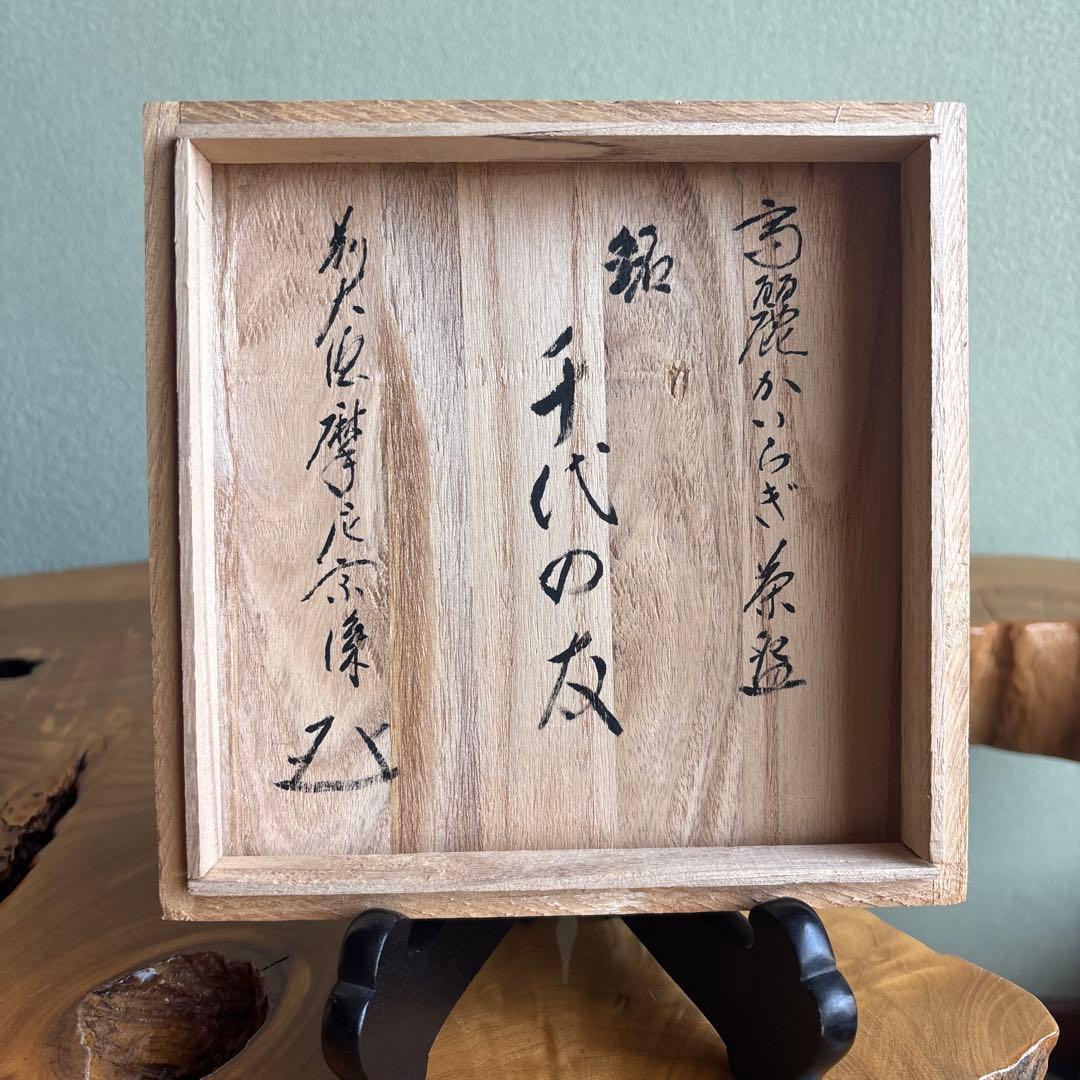 高麗かいらぎ茶盌
銘
千代の友
前大徳摩尼宗